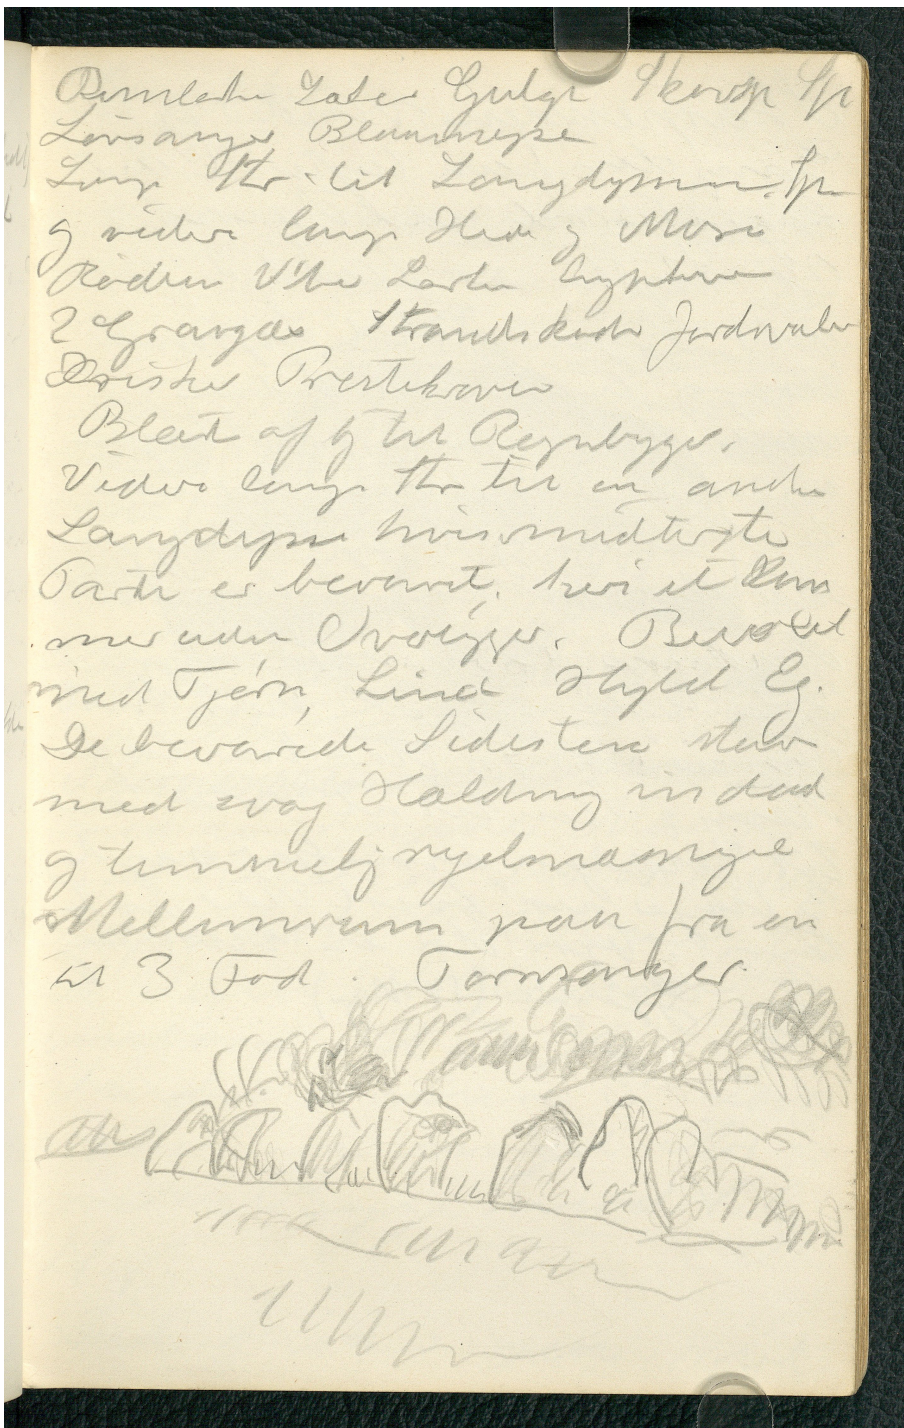 Bomlærke Gulsp Skovsp Sp
Løvsanger Blaamejse
Langs Str. til Langdyssen. Sp
og videre langs Hede og Mose
Rødben Vibe Lærke
2 Graagæs Strandskade Jordsvaler
Præstekraver
Blæst af og til Regnbyger.
Videre langs Str til en anden
Langdysse hvis midterste
Parti er bevaret, heri et Kam
mer uden Overligger. Bevoxet
med Tjørn, Lind Hyld Eg.
De bevarede Sidesten staar
med svag Hældning indad
og temmelig regelmæssige
Mellemrum paa fra en
til 3 Fod. Tornsanger.